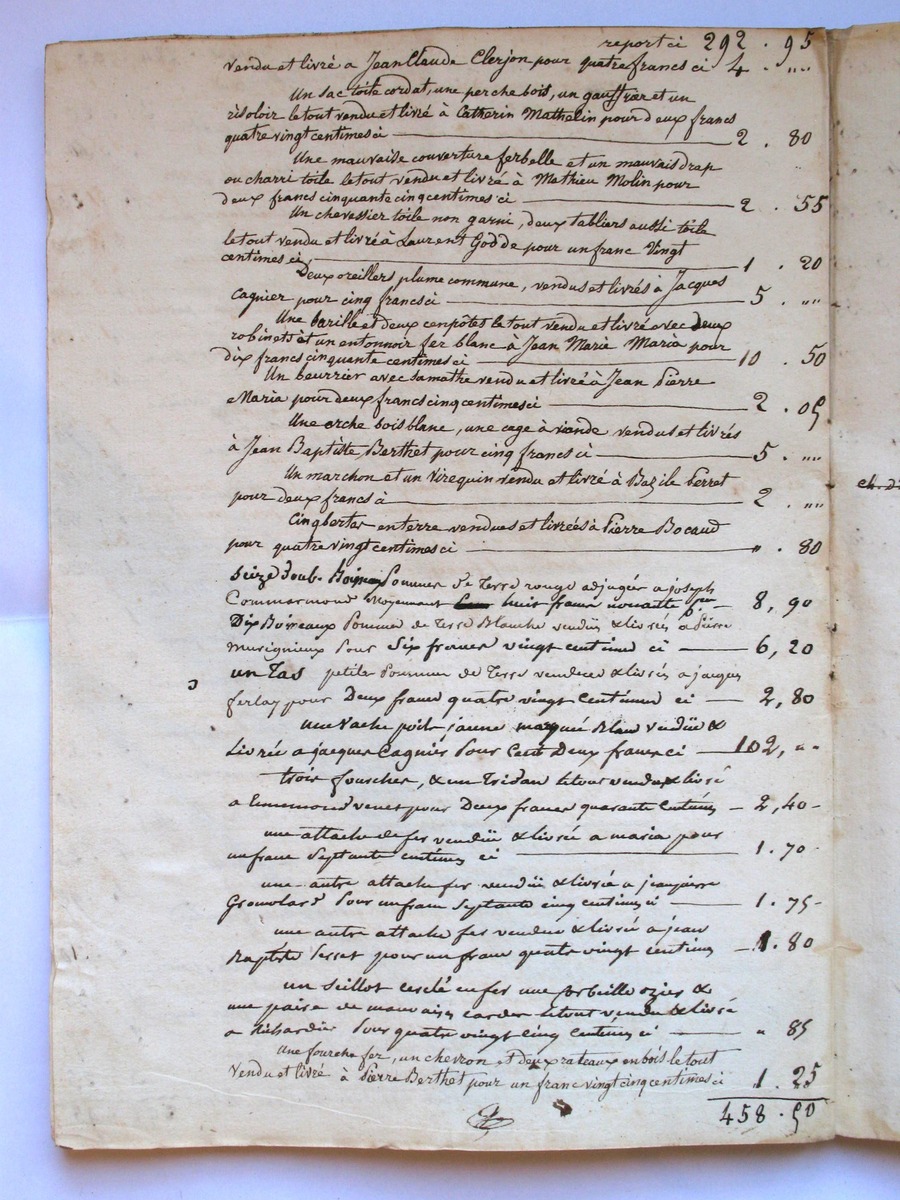 report ci 292 . 95
vendu et livré a Jean Claude Clerjon pour quatre francs ci 4 . "..
Un sac toile cordat, une perche bois, un et un
le tout vendu et livré à Catherin Mathelin pour deux francs
quatre vingt centimes ci 2 . 80
Une mauvaise couverture ferbelle et un mauvais drap
ou charri toile le tout vendu et livré à Mathieu Molin pour
deux francs cinquante cinq centimes ci 2 . 55
Un chevessier toile non garni, deux tabliers aussi toile
le tout vendu et livré à Laurent Godde pour un franc vingt
centimes ci 1 . 20
Deux oreillers plume commune, vendus et livrés à Jacques
Cagnier pour cinq francs ci 5 . ""
Une barille et deux le tout vendu et livré avec deux
robinets et un entonnoir fer blanc à Jean Marie Maria pour
dix francs cinquante centimes ci 10 . 50
Un beurrier avec sa mathe vendu et livré à Jean Pierre
Maria pour deux francs cinq centimes ci 2 . 05
Une arche bois blanc, une cage à viande vendus et livrés
à Jean Baptiste Berthet pour cinq francs ci 5 . ""
Un marchon et un virequin vendu et livré à Bazile Perret
pour deux francs à 2 . ""
Cinq bertes en terre vendues et livrées à Pierre Bocaud
pour quatre vingt centimes ci " . 80
Seize Doub. Pommes de terre rouge adjugées a joseph
Commarmond Moyennant huit francs nonante 8, 90
Dix Boisseaux Pommes de Terre Blanche vendües & livrés a Pierre
Murigneux Pour Six francs vingt centimes ci 6, 20
un Tas petites Pommes de Terre vendues & livrés a jacques
ferlay pour Deux francs quatre vingt centimes ci 2, 80
une Vache poils jaune marqué Blan vendüe &
Livrée a jacques Cagnier Pour Cent Deux francs ci 102, ""
trois fourches, & un Tridan le tout vendu & livré
a Ennemond venet pour Deux francs quarante centimes 2, 40
une attache de fer vendüe & livrée a maria pour
un franc Septante centimes ci 1 . 70
une autre attache fer vendüe & livrée a jean pierre
Gromolard Pour un franc Septante cinq centimes ci 1 . 75
une autre attache fer vendue & livrée a jean
Baptiste Perret pour un franc quatre vingt centimes 1 . 80
un seillot cerclé en fer une Corbeille ozier &
une paire de mauvaises cardes le tout vendu & livré
a Richardier Pour quatre vingt cinq centimes ci " 85
Une fourche fer, un chevron et deux rateaux en bois le tout
Vendu et livré à Pierre Berthet pour un franc vingt cinq centimes ci 1 . 25
458 . 50